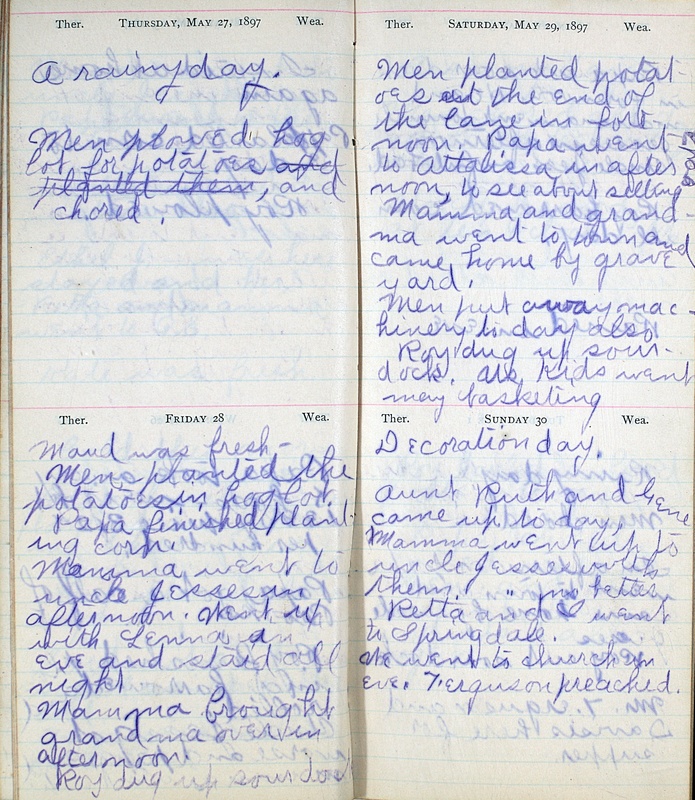 Ther. THURSDAY, MAY 27, 1897 Wea.
A rainy day.
Men plowed hog
lot for potatoes and
planted them, and
chored.
Ther. FRIDAY 28 Wea.
Maud was fresh-
Mens planted the
potatoes in hog lot.
Papa finished plant-
ing corn.
Mamma went to
uncle Jesses in
afternoon. Went up
with Lenna in
eve and staid all
night
Mamma brought
grandma over in
afternoon.
Roy dug up sour dock
Ther. SATURDAY, MAY 29, 1897 Wea.
Men planted potat-
oes at the end of
the lane in fore
noon. Papa went
to Attalissa in after
noon, to see about selling
Mamma and grand-
ma went to town and
came home by grave
yard.
Men put away mac-
hinery to day also.
Roy dug up sour-
dock. Us kids went
may basketing
Ther. SUNDAY 30 Wea.
Decoration day.
Aunt Ruth and Gene
came up to day.
Mamma went up to
uncle Jesses with
them. " no better
Retta and I went
to Springdale.
We went to church in
eve. Ferguson preached.